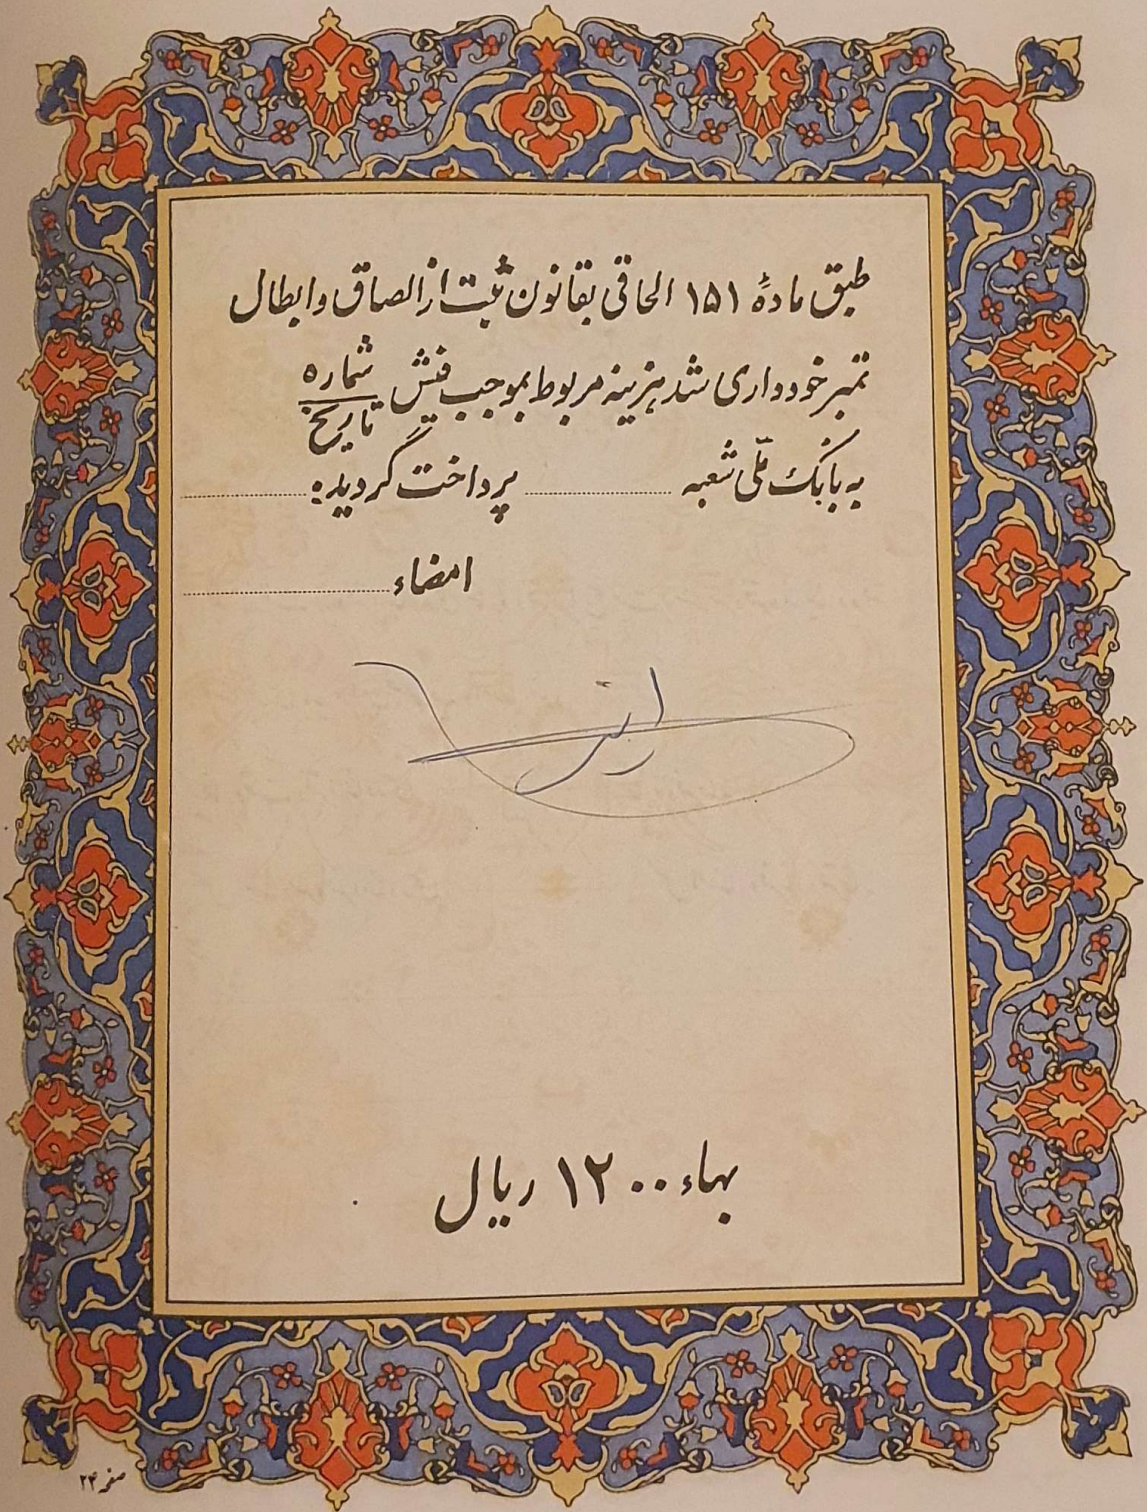 طبق مادهٔ ۱۵۱ الحاقی بقانون ثبت از الصاق و ابطال
تمبر خودداری شد هزینه مربوط بموجب فیش شماره
تاریخ
به بانک ملّی شعبه .................... پرداخت گردیده ....................
امضاء ....................
بهاء ۱۲۰۰ ریال
صفحه ۲۴